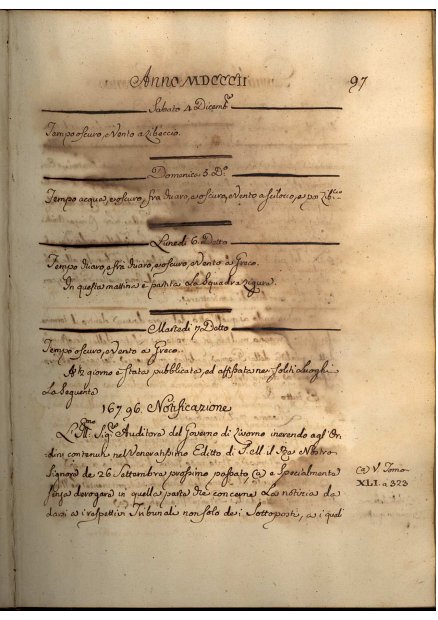 Anno MDCCCII
97
Sabato 4 Dicemb.
Tempo oscuro, e Vento a Libeccio.
Domenica 5 D.º
Tempo acqua, e oscuro, frà chiaro, e oscuro, e Vento a scilocco, e poi Lib.cio
Lunedi 6 Detto
Tempo chiaro, e frà chiaro, e oscuro, e Vento à Greco.
In questa mattina è partita la Squadra Ligure.
Martedi 7 Detto
Tempo oscuro, e Vento a Greco.
giorno è stata pubblicata, ed affissata nei soliti luoghi
La Seguente
16796. Notificazione
L'Ill.mo Sig.re Auditore del Governo di Livorno inerendo agl'Or-
dini contenuti nel Veneratissimo Editto di S. M. il Rè Nostro
Signore de 26 Settembre prossimo passato, (a) e Specialmente
senza derogare in quella parte che concerne la notizia da
darsi a i respettivi Tribunali non solo dei Sottoposti, a i quali
(a) V. Tomo
XLI. a 323